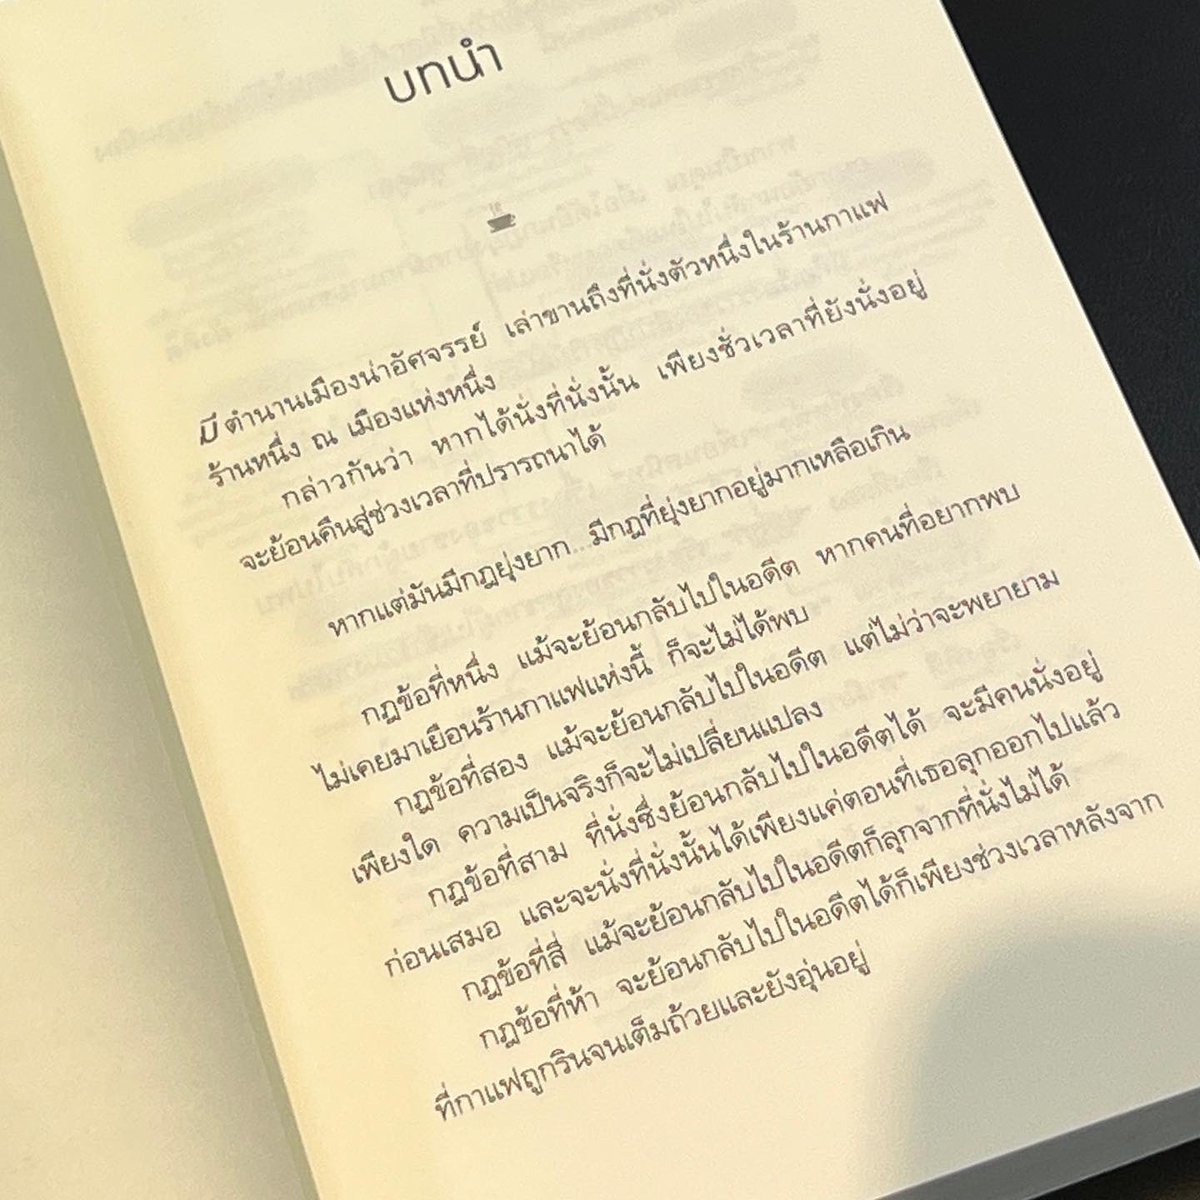 บทนำ
มีตำนานเมืองน่าอัศจรรย์ เล่าขานถึงที่นั่งตัวหนึ่งในร้านกาแฟ
ร้านหนึ่ง ณ เมืองแห่งหนึ่ง
กล่าวกันว่า หากได้นั่งที่นั่งนั้น เพียงชั่วเวลาที่ยังนั่งอยู่
จะย้อนคืนสู่ช่วงเวลาที่ปรารถนาได้
หากแต่มันมีกฎยุ่งยาก...มีกฎที่ยุ่งยากอยู่มากเหลือเกิน
กฎข้อที่หนึ่ง แม้จะย้อนกลับไปในอดีต หากคนที่อยากพบ
ไม่เคยมาเยือนร้านกาแฟแห่งนี้ ก็จะไม่ได้พบ
กฎข้อที่สอง แม้จะย้อนกลับไปในอดีต แต่ไม่ว่าจะพยายาม
เพียงใด ความเป็นจริงก็จะไม่เปลี่ยนแปลง
กฎข้อที่สาม ที่นั่งซึ่งย้อนกลับไปในอดีตได้ จะมีคนนั่งอยู่
ก่อนเสมอ และจะนั่งที่นั่งนั้นได้เพียงแค่ตอนที่เธอลุกออกไปแล้ว
กฎข้อที่สี่ แม้จะย้อนกลับไปในอดีตก็ลุกจากที่นั่งไม่ได้
กฎข้อที่ห้า จะย้อนกลับไปในอดีตได้ก็เพียงช่วงเวลาหลังจาก
ที่กาแฟถูกรินจนเต็มถ้วยและยังอุ่นอยู่